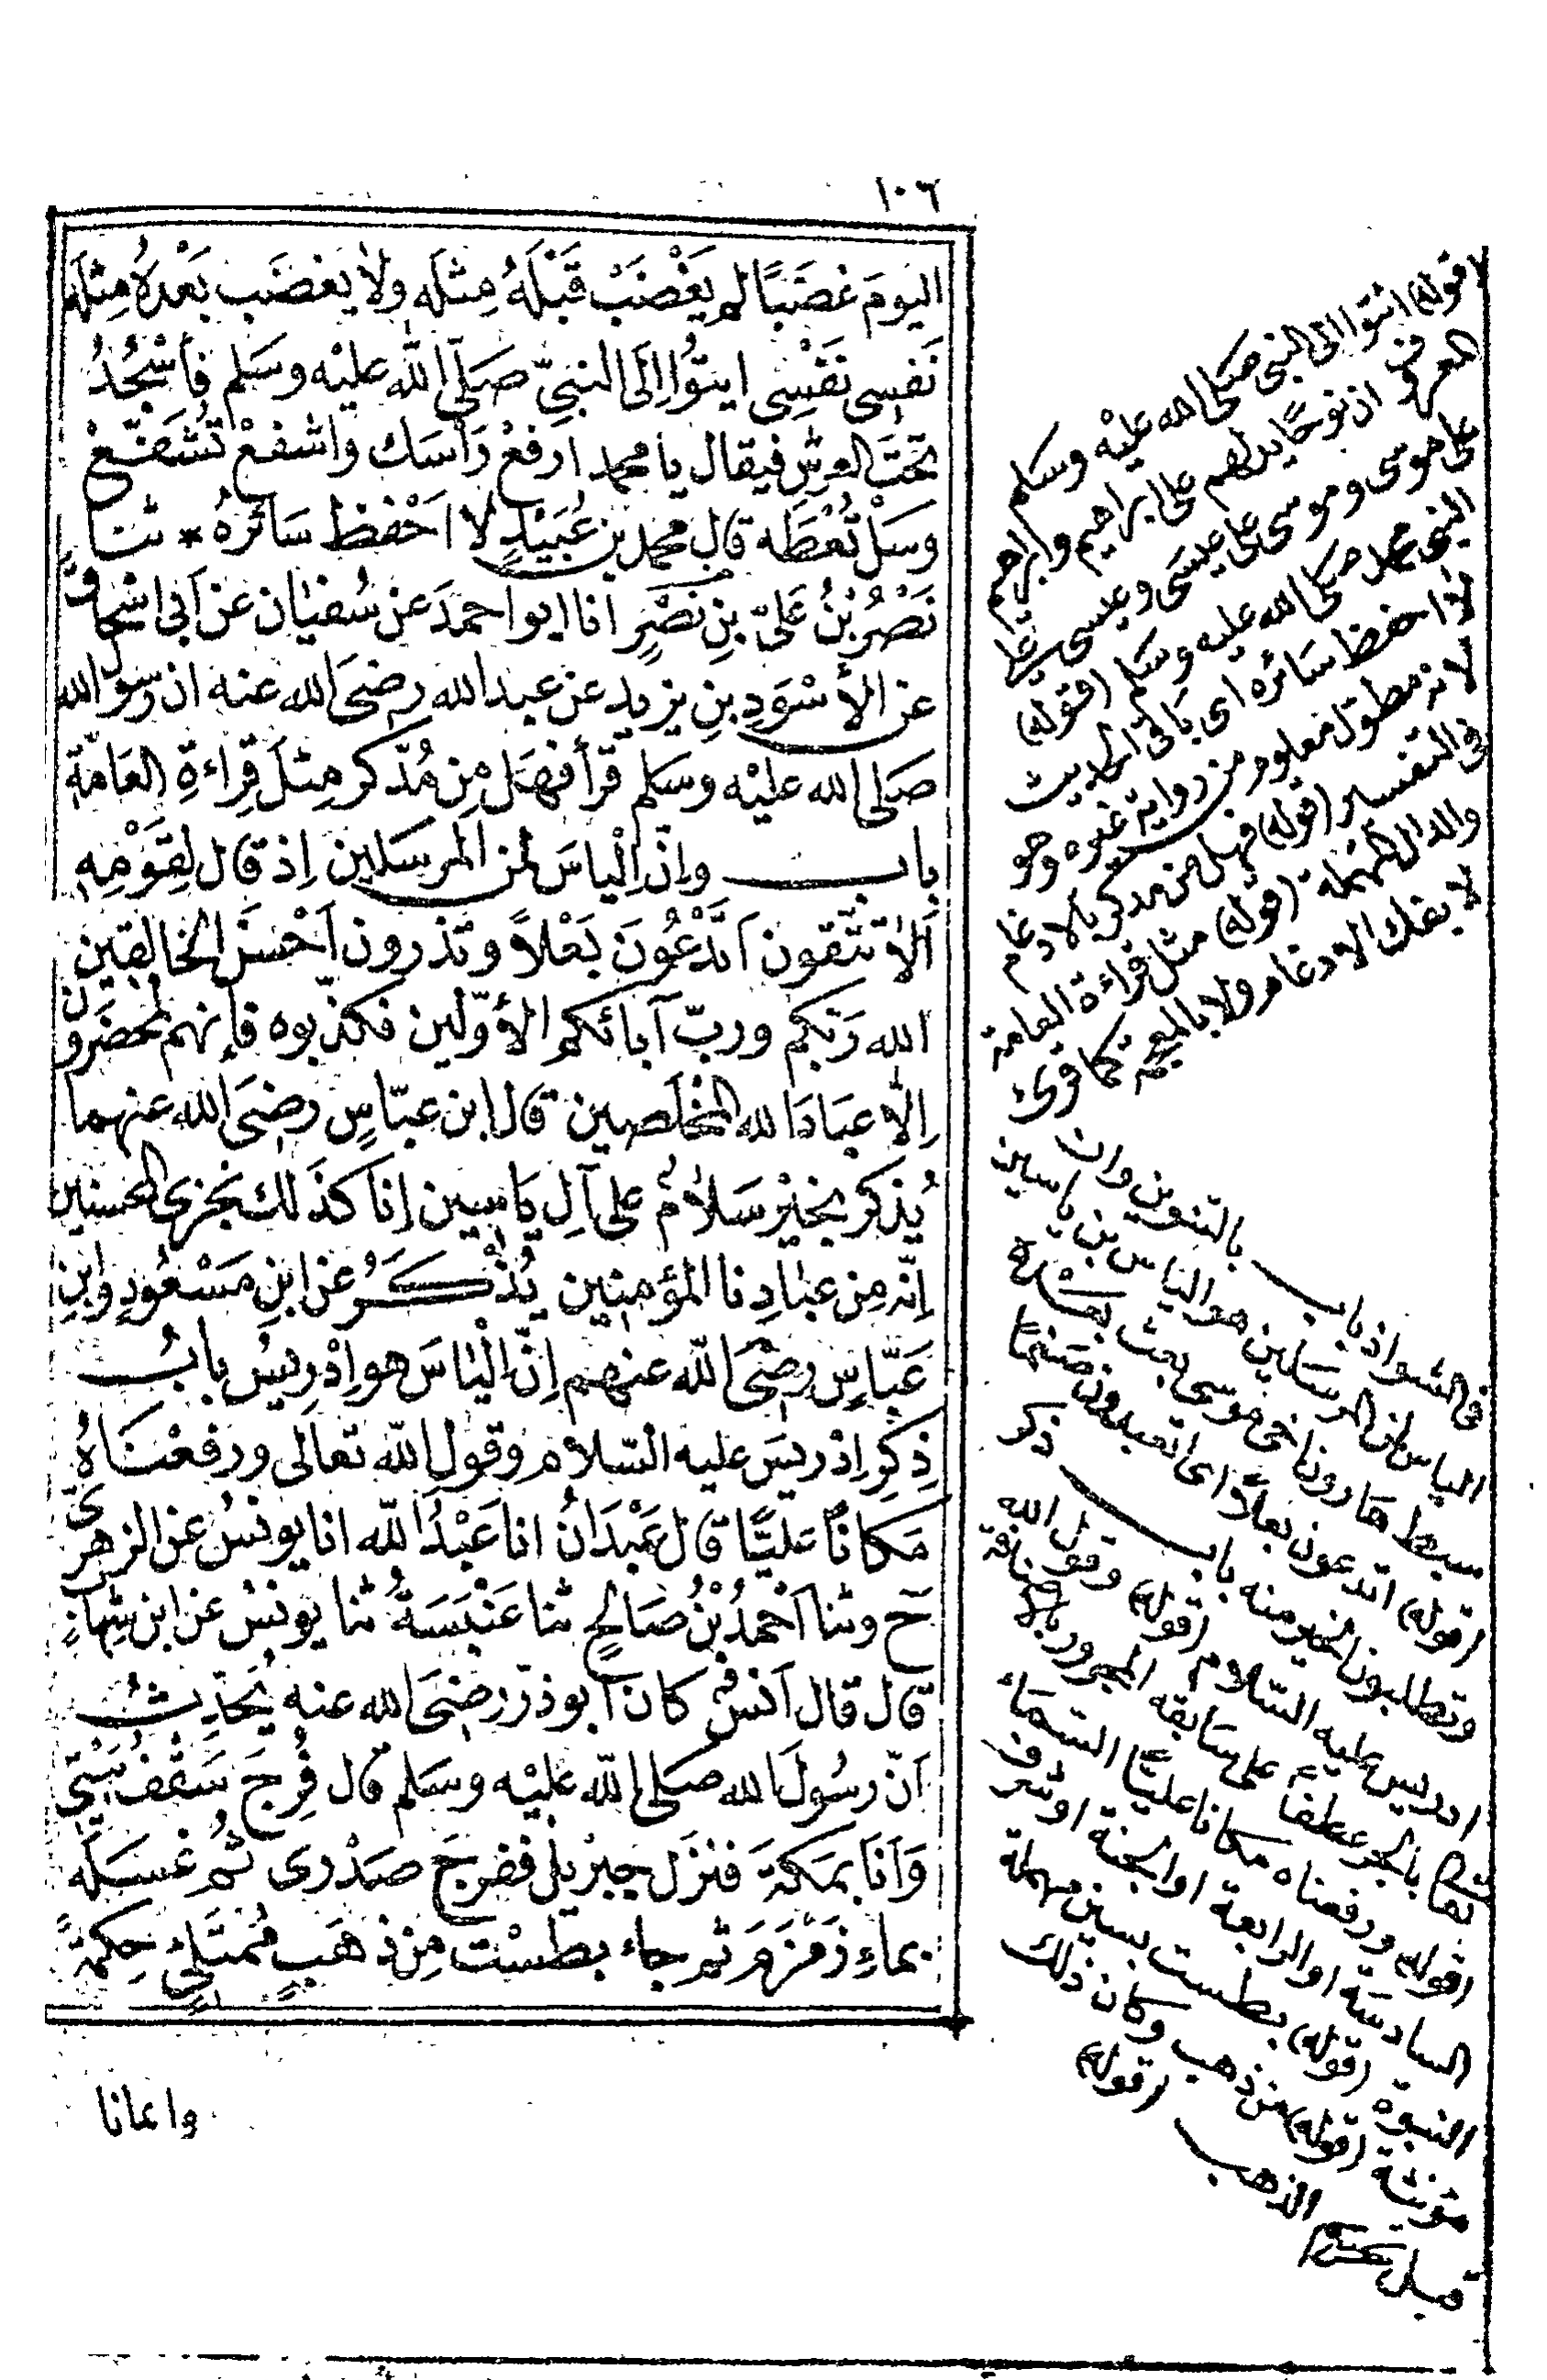 ١٠٦
اليومَ غضَبًا لم يَغْضَبْ قَبْلَهُ مِثلَه ولا يغضَب بَعْدَهُ مِثلَه
نَفسِى نَفْسِى ايتوُا اِلَى النبىّ صَلّى الله عليْه وسَلم فأسْجُدُ
تحتَ العرشِ فيقال يا محمد ارفعْ رَأسَك واشفعْ تُشَفّعْ
وسَلْ تُعْطَه قال محمد بن عُبَيْدٍ لا احْفظ سَائرهُ * ثنا
نَصْرُ بْنُ عَلىّ بنِ نصْرٍ انا ابو احمدَ عن سُفيٰان عن اَبى اسْحاق
عن الأسْوَدِ بنِ يزيد عن عبد الله رضىَ الله عنه ان رسول الله
صَلى الله عليْه وسَلم قرأ فهَل مِن مُدّكر مِثلَ قِراءةِ العَامّة
باب وإنّ اِلْياسَ لمن المرسَلين اِذ قال لقوْمِه
اَلا تتّقون اَتَدْعُونَ بَعْلاً وتذرون اَحْسَنَ الخالقين
الله رَبّكم وربّ آبائكم الأوّلين فكذّبوه فإنهم لمحضَرون
اِلّا عبَادَ الله المخلَصين قال ابن عبّاسٍ رضىَ الله عنهما
يُذكر بخيْر سَلامٌ على آلِ يَاسين اِنا كذَلك نجزى المحسنين
اِنّه مِن عبٰادِنا المؤمنين يُذْكَرُ عن ابنِ مَسْعُودٍ وابنِ
عَبّاسٍ رضىَ الله عنهم اِنّ اِلْيٰاسَ هو اِدْرِيسُ بابُ
ذِكرِ اِدْريسَ عليه السّلام وقولِ الله تعالى ورفعْنَاهُ
مَكانًا عَليًّا قال عَبْدَانُ انا عَبْدُ الله انا يونسُ عن الزهرىّ
حَ وثنا اَحمدُ بْنُ صَالحٍ ثنا عَنْبَسَةُ ثنا يونسُ عن ابن شِهابٍ
قال قال اَنسٌ كان اَبو ذرّ رضىَ الله عنه يُحَدِّثُ
اَنّ رسُولَ الله صَلى الله عليْه وسَلم قال فُرِجَ سَقْفُ بَيْتى
وَاَنَا بمَكةَ فنزَل جبْريلُ ففرجَ صَدْرى ثُم غسَلَه
بماءِ زَمْزَمَ ثم جاء بطَسْت مِن ذهَبٍ مُمتَلئٍ حِكمةً
وايمانا
(قوله) ائتوا الى النبى صَلى الله عليْه وسلم
المعروف ان نوحًا يدلهم على ابراهيم وابراهيم
على موسى وموسى على عيسَى وعيسى يدل على
النبى محمد صَلى الله عليه وسَلم (قوله)
لا احفظ سَائره اى باقى الحديث
لانه مطوّل معلوم من رواية غيره وهو
فى التفسير (قوله) فهل من مدكر بالادغام
والدال المهملة (قوله) مثل قراءة العامة
لا بفك الادغام ولا بالمعجمة كما قرئ
فى الشواذ باب بالتنوين وان
الياس لمن المرسَلين هو الياس بن ياسين
سبط هَارون اخى موسى بعث بعده
(قوله) اتدعون بعلاً اى اتعبدون صَنمًا
وتطلبون الخير منه باب ذكر
ادريس عليه السّلام (قوله) وقول الله
تعالى بالجر عطفًا على سَابقه المجرور بالاضافة
(قوله) ورفعناه مكانا عليًّا السّمَاء
السادسَة او الرابعة او الجنة او شرف
النبوة (قوله) بطست بسين مهملة
مؤنثة (قوله) من ذهب وكان ذلك
قبل تحريم الذهب (قوله)